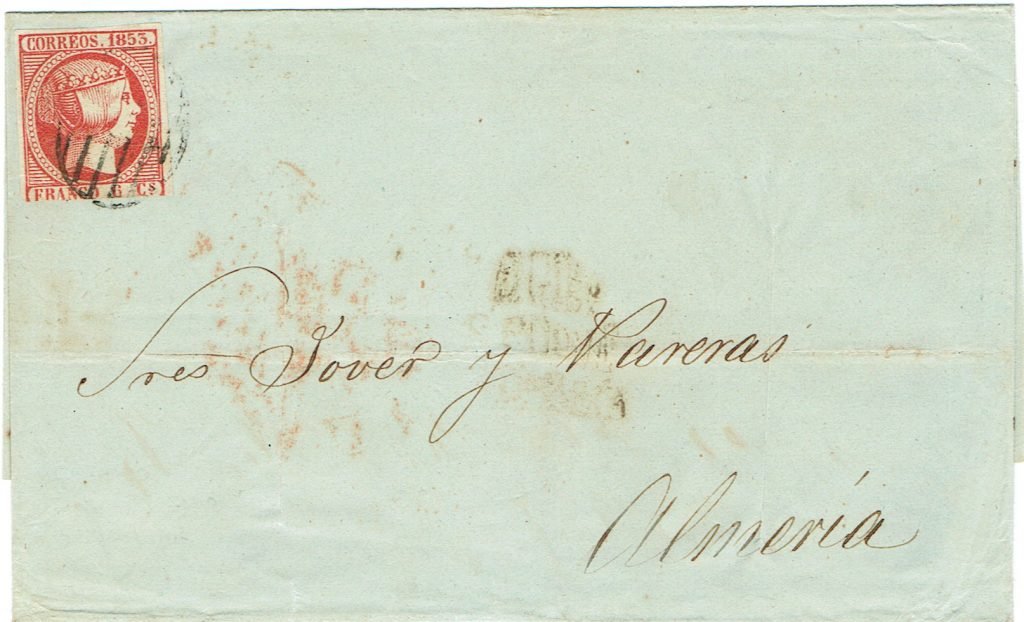 CORREOS. 1853.
FRANCO 6 Cs
Sres Jover y Vareras
Almería